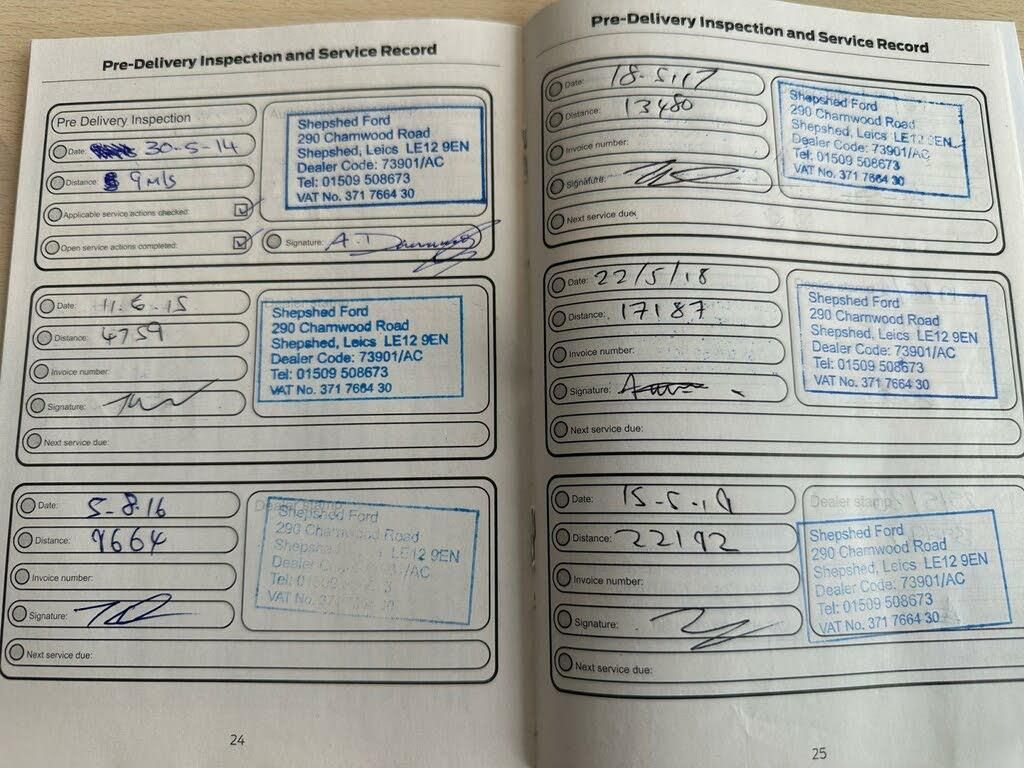 Pre-Delivery Inspection and Service Record
Pre Delivery Inspection
Date: 30-5-14
Distance: 9 Mls
Applicable service actions checked:
Open service actions completed:
Signature:
Shepshed Ford
290 Charnwood Road
Shepshed, Leics LE12 9EN
Dealer Code: 73901/AC
Tel: 01509 508673
VAT No. 371 7664 30
Date: 11.6.15
Distance: 4759
Invoice number:
Signature:
Next service due:
Shepshed Ford
290 Charnwood Road
Shepshed, Leics LE12 9EN
Dealer Code: 73901/AC
Tel: 01509 508673
VAT No. 371 7664 30
Date: 5-8.16
Distance: 9664
Invoice number:
Signature:
Next service due:
Dealer stamp
Shepshed Ford
290 Charnwood Road
Shepshed LE12 9EN
Dealer 73901/AC
Tel: 01509
VAT No. 371 30
24
Pre-Delivery Inspection and Service Record
Date: 18-5.17
Distance: 13480
Invoice number:
Signature:
Next service due:
Shepshed Ford
290 Charnwood Road
Shepshed, Leics LE12 9EN
Dealer Code: 73901/AC
Tel: 01509 508673
VAT No. 371 7664 30
Date: 22/5/18
Distance: 17187
Invoice number:
Signature:
Next service due:
Shepshed Ford
290 Charnwood Road
Shepshed, Leics LE12 9EN
Dealer Code: 73901/AC
Tel: 01509 508673
VAT No. 371 7664 30
Date: 15-5-19
Distance: 22192
Invoice number:
Signature:
Next service due:
Dealer stamp
Shepshed Ford
290 Charnwood Road
Shepshed, Leics LE12 9EN
Dealer Code: 73901/AC
Tel: 01509 508673
VAT No. 371 7664 30
25